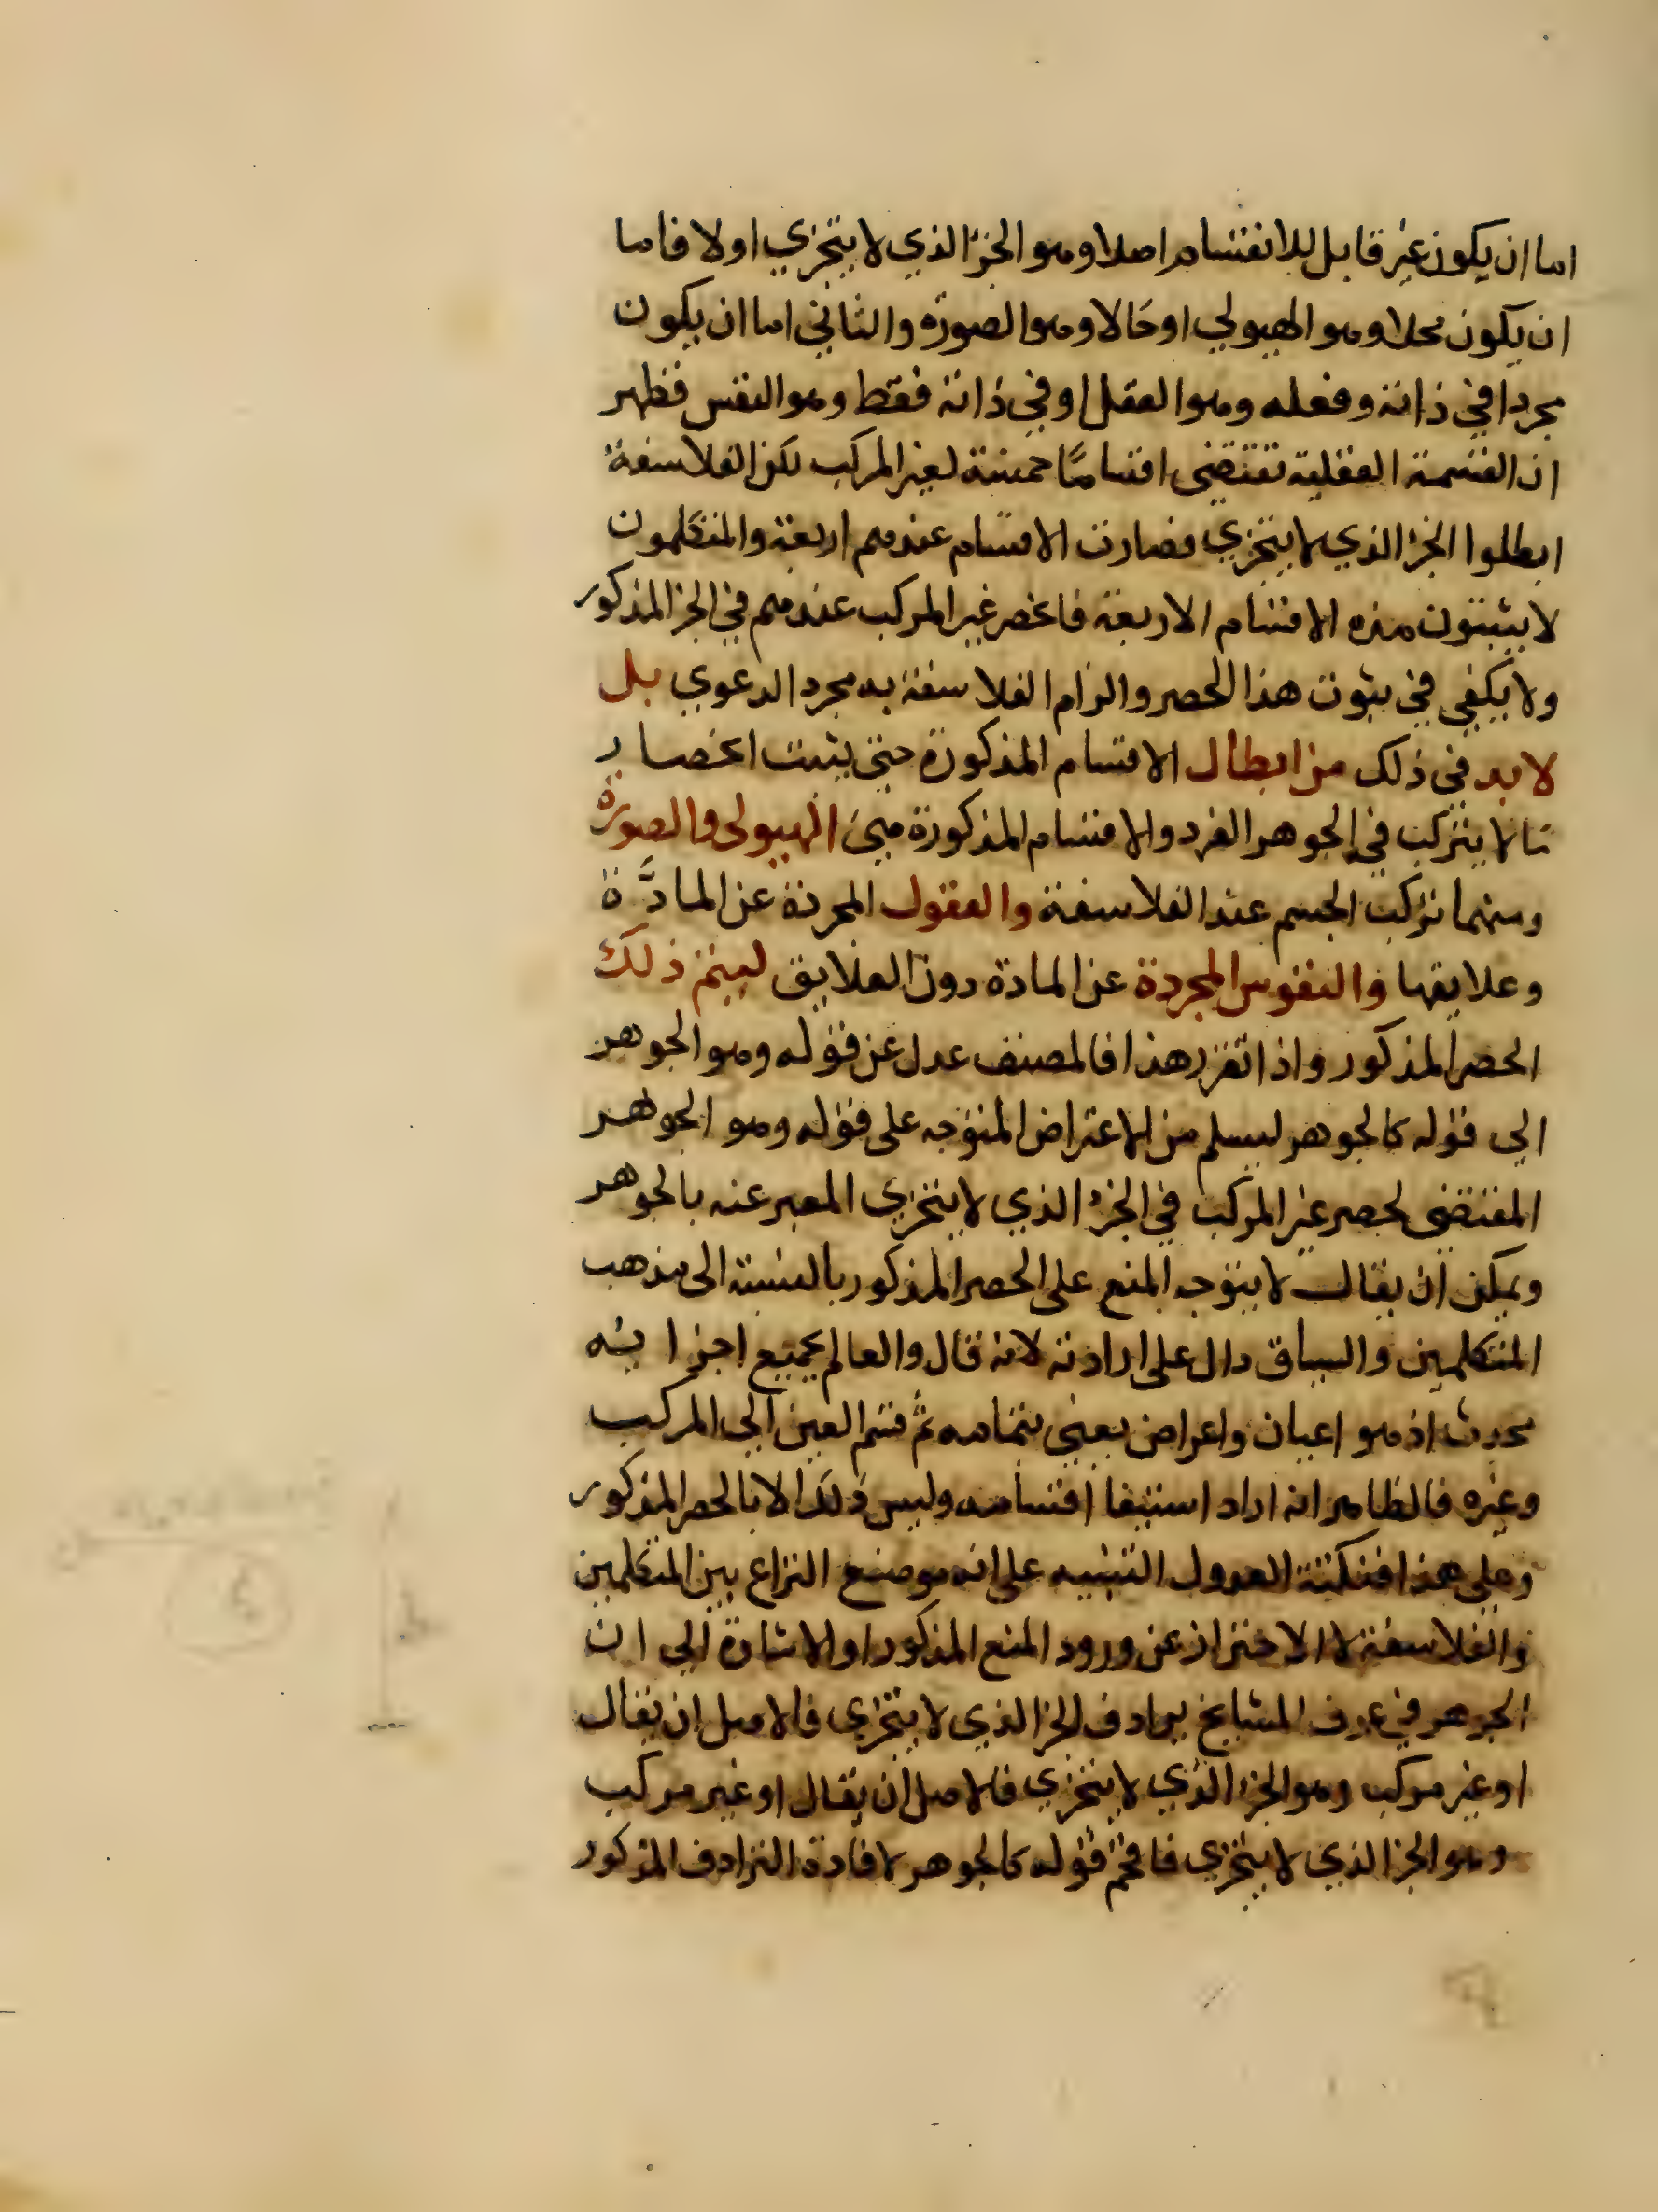 اما ان يكون غير قابل للانقسام اصلا وهو الجزء الذي لا يتجزي او لا فاما
ان يكون محلا وهو الهيولي او حالا وهو الصورة والثاني اما ان يكون
مجردا في ذاته وفعله وهو العقل او في ذاته فقط وهو النفس فظهر
ان القسمة العقلية تقتضي اقسامًا خمسة لغير المركب لكن الفلاسفة
ابطلوا الجزء الذي لا يتجزي فصارت الاقسام عندهم اربعة والمتكلمون
لا يثبتون هذه الاقسام الاربعة فانحصر غير المركب عندهم في الجزء المذكور
ولا يكفي في ثبوت هذا الحصر والزام الفلاسفة به مجرد الدعوي بل
لا بد في ذلك من ابطال الاقسام المذكورة حتى يثبت انحصار
ما لا يتركب في الجوهر الفرد والاقسام المذكورة هي الهيولى والصورة
ومنهما تركب الجسم عند الفلاسفة والعقول المجردة عن المادَّة
وعلايقها والنفوس المجردة عن المادة دون العلايق ليتم ذلك
الحصر المذكور واذا تقرر هذا فالمصنف عدل عن قوله وهو الجوهر
الي قوله كالجوهر ليسلم من الاعتراض المتوجه على قوله وهو الجوهر
المقتضي لحصر غير المركب في الجزء الذي لا يتجزي المعبر عنه بالجوهر
ويمكن ان يقال لا يتوجه المنع على الحصر المذكور بالنسبة الى مذهب
المتكلمين والسياق دال على ارادته لانه قال والعالم بجميع اجزايه
محدث اذ هو اعيان واعراض يعني بتمامه ثم قسم العين الي المركب
وغيره فالظاهر انه اراد استيفا اقسامه وليس ذلك الا بالحصر المذكور
وعلى هذا فنكتة العدول التنبيه على انه موضع النزاع بين المتكلمين
والفلاسفة لا الاحتراز عن ورود المنع المذكور او الاشارة الي ان
الجوهر في عرف المشايخ يرادف الجز الذي لا يتجزي فالاصل ان يقال
او غير مركب وهو الجزء الذي لا يتجزي فالاصل ان يقال او غير مركب
وهو الجز الذي لا يتجزي فاقحم قوله كالجوهر لافادة الترادف المذكور